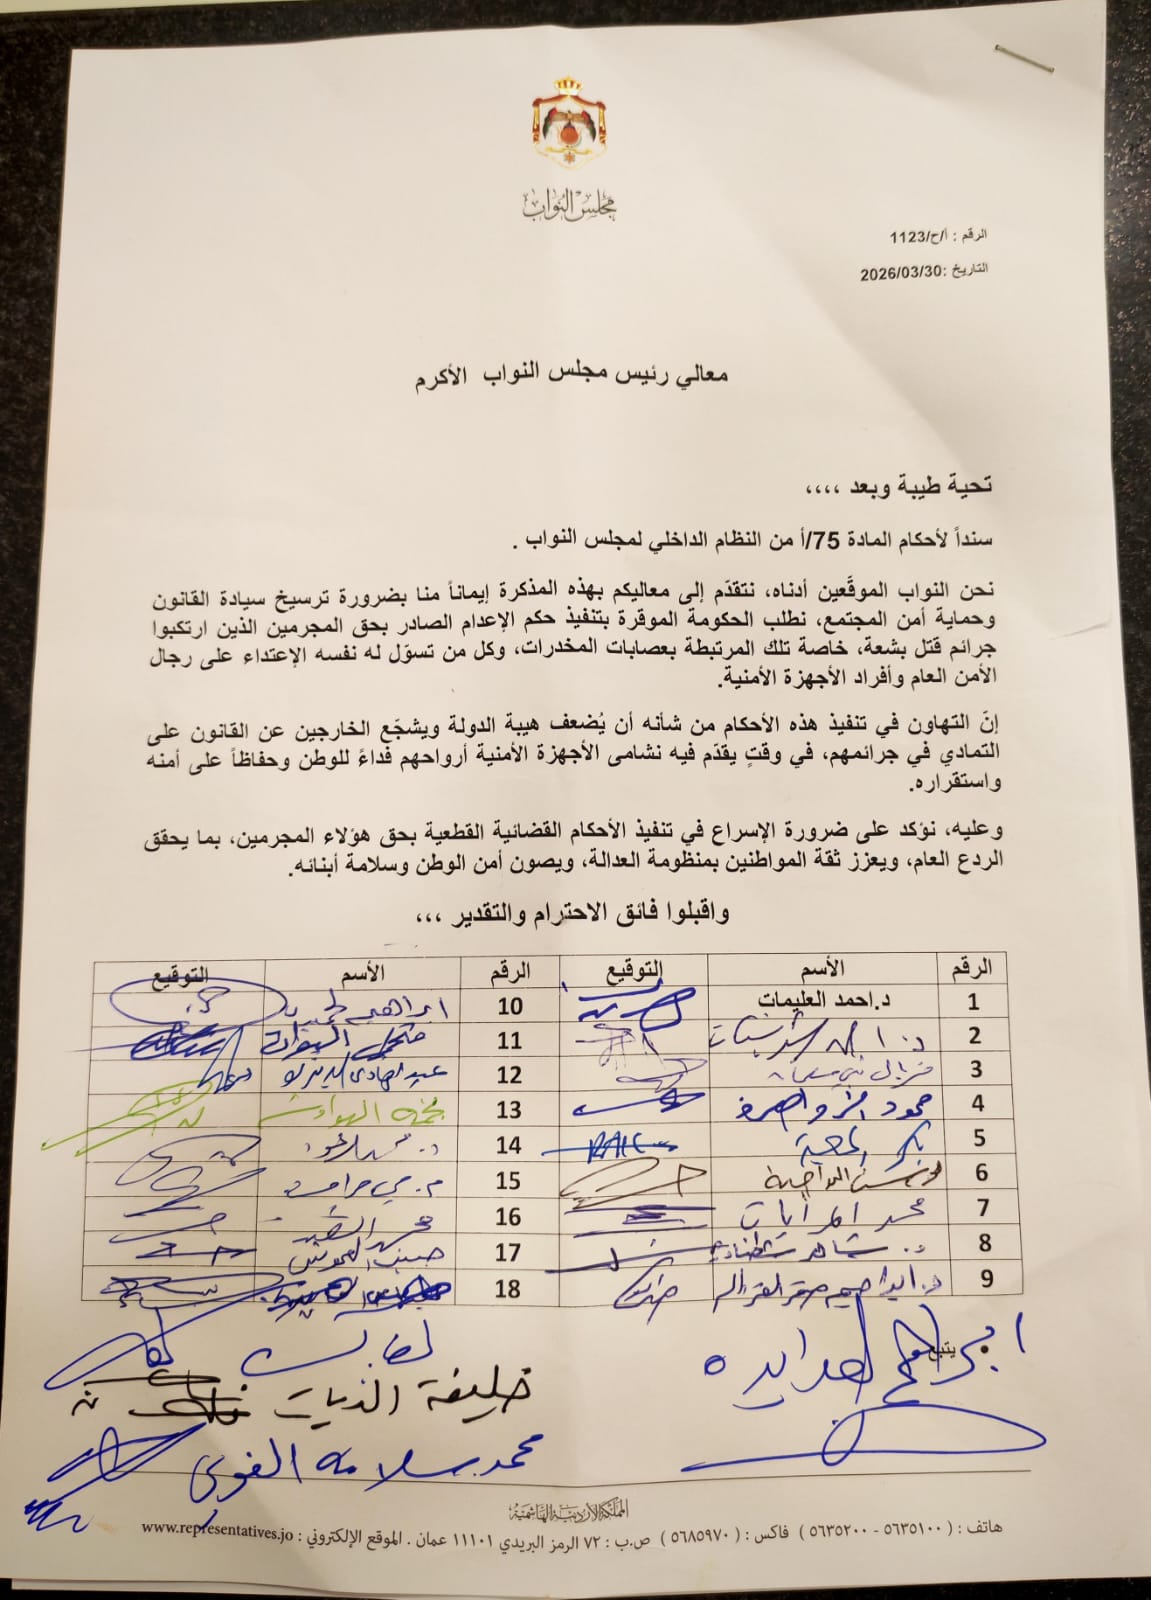 مجلس النواب
الرقم : أ/ح/1123
التاريخ :2026/03/30
معالي رئيس مجلس النواب الأكرم
تحية طيبة وبعد ،،،،
سنداً لأحكام المادة 75/أ من النظام الداخلي لمجلس النواب .
نحن النواب الموقَّعين أدناه، نتقدّم إلى معاليكم بهذه المذكرة إيماناً منا بضرورة ترسيخ سيادة القانون
وحماية أمن المجتمع، نطلب الحكومة الموقرة بتنفيذ حكم الإعدام الصادر بحق المجرمين الذين ارتكبوا
جرائم قتل بشعة، خاصة تلك المرتبطة بعصابات المخدرات، وكل من تسوّل له نفسه الإعتداء على رجال
الأمن العام وأفراد الأجهزة الأمنية.
إنّ التهاون في تنفيذ هذه الأحكام من شأنه أن يُضعف هيبة الدولة ويشجّع الخارجين عن القانون على
التمادي في جرائمهم، في وقتٍ يقدّم فيه نشامى الأجهزة الأمنية أرواحهم فداءً للوطن وحفاظاً على أمنه
واستقراره.
وعليه، نؤكد على ضرورة الإسراع في تنفيذ الأحكام القضائية القطعية بحق هؤلاء المجرمين، بما يحقق
الردع العام، ويعزز ثقة المواطنين بمنظومة العدالة، ويصون أمن الوطن وسلامة أبنائه.
واقبلوا فائق الاحترام والتقدير ،،،
الرقم الأسم التوقيع الرقم الأسم التوقيع
1 د.احمد العليمات 10 ابراهيم
2 د. 11
3 12 عبدالهادي
4 محمود 13 الهواوشة
5 14 د.
6 15
7 محمد 16 محمد
8 د. شاهر شطناوي 17
9 د. ابراهيم صقر القرالة 18
يتبع
خليفة الديات
محمد سلامه الغويري
المملكة الأردنية الهاشمية
هاتف : ( ٥٦٣٥١٠٠ - ٥٦٣٥٢٠٠ ) فاكس : ( ٥٦٨٥٩٧٠ ) ص.ب : ٧٢ الرمز البريدي ١١١٠١ عمان . الموقع الإلكتروني : www.representatives.jo